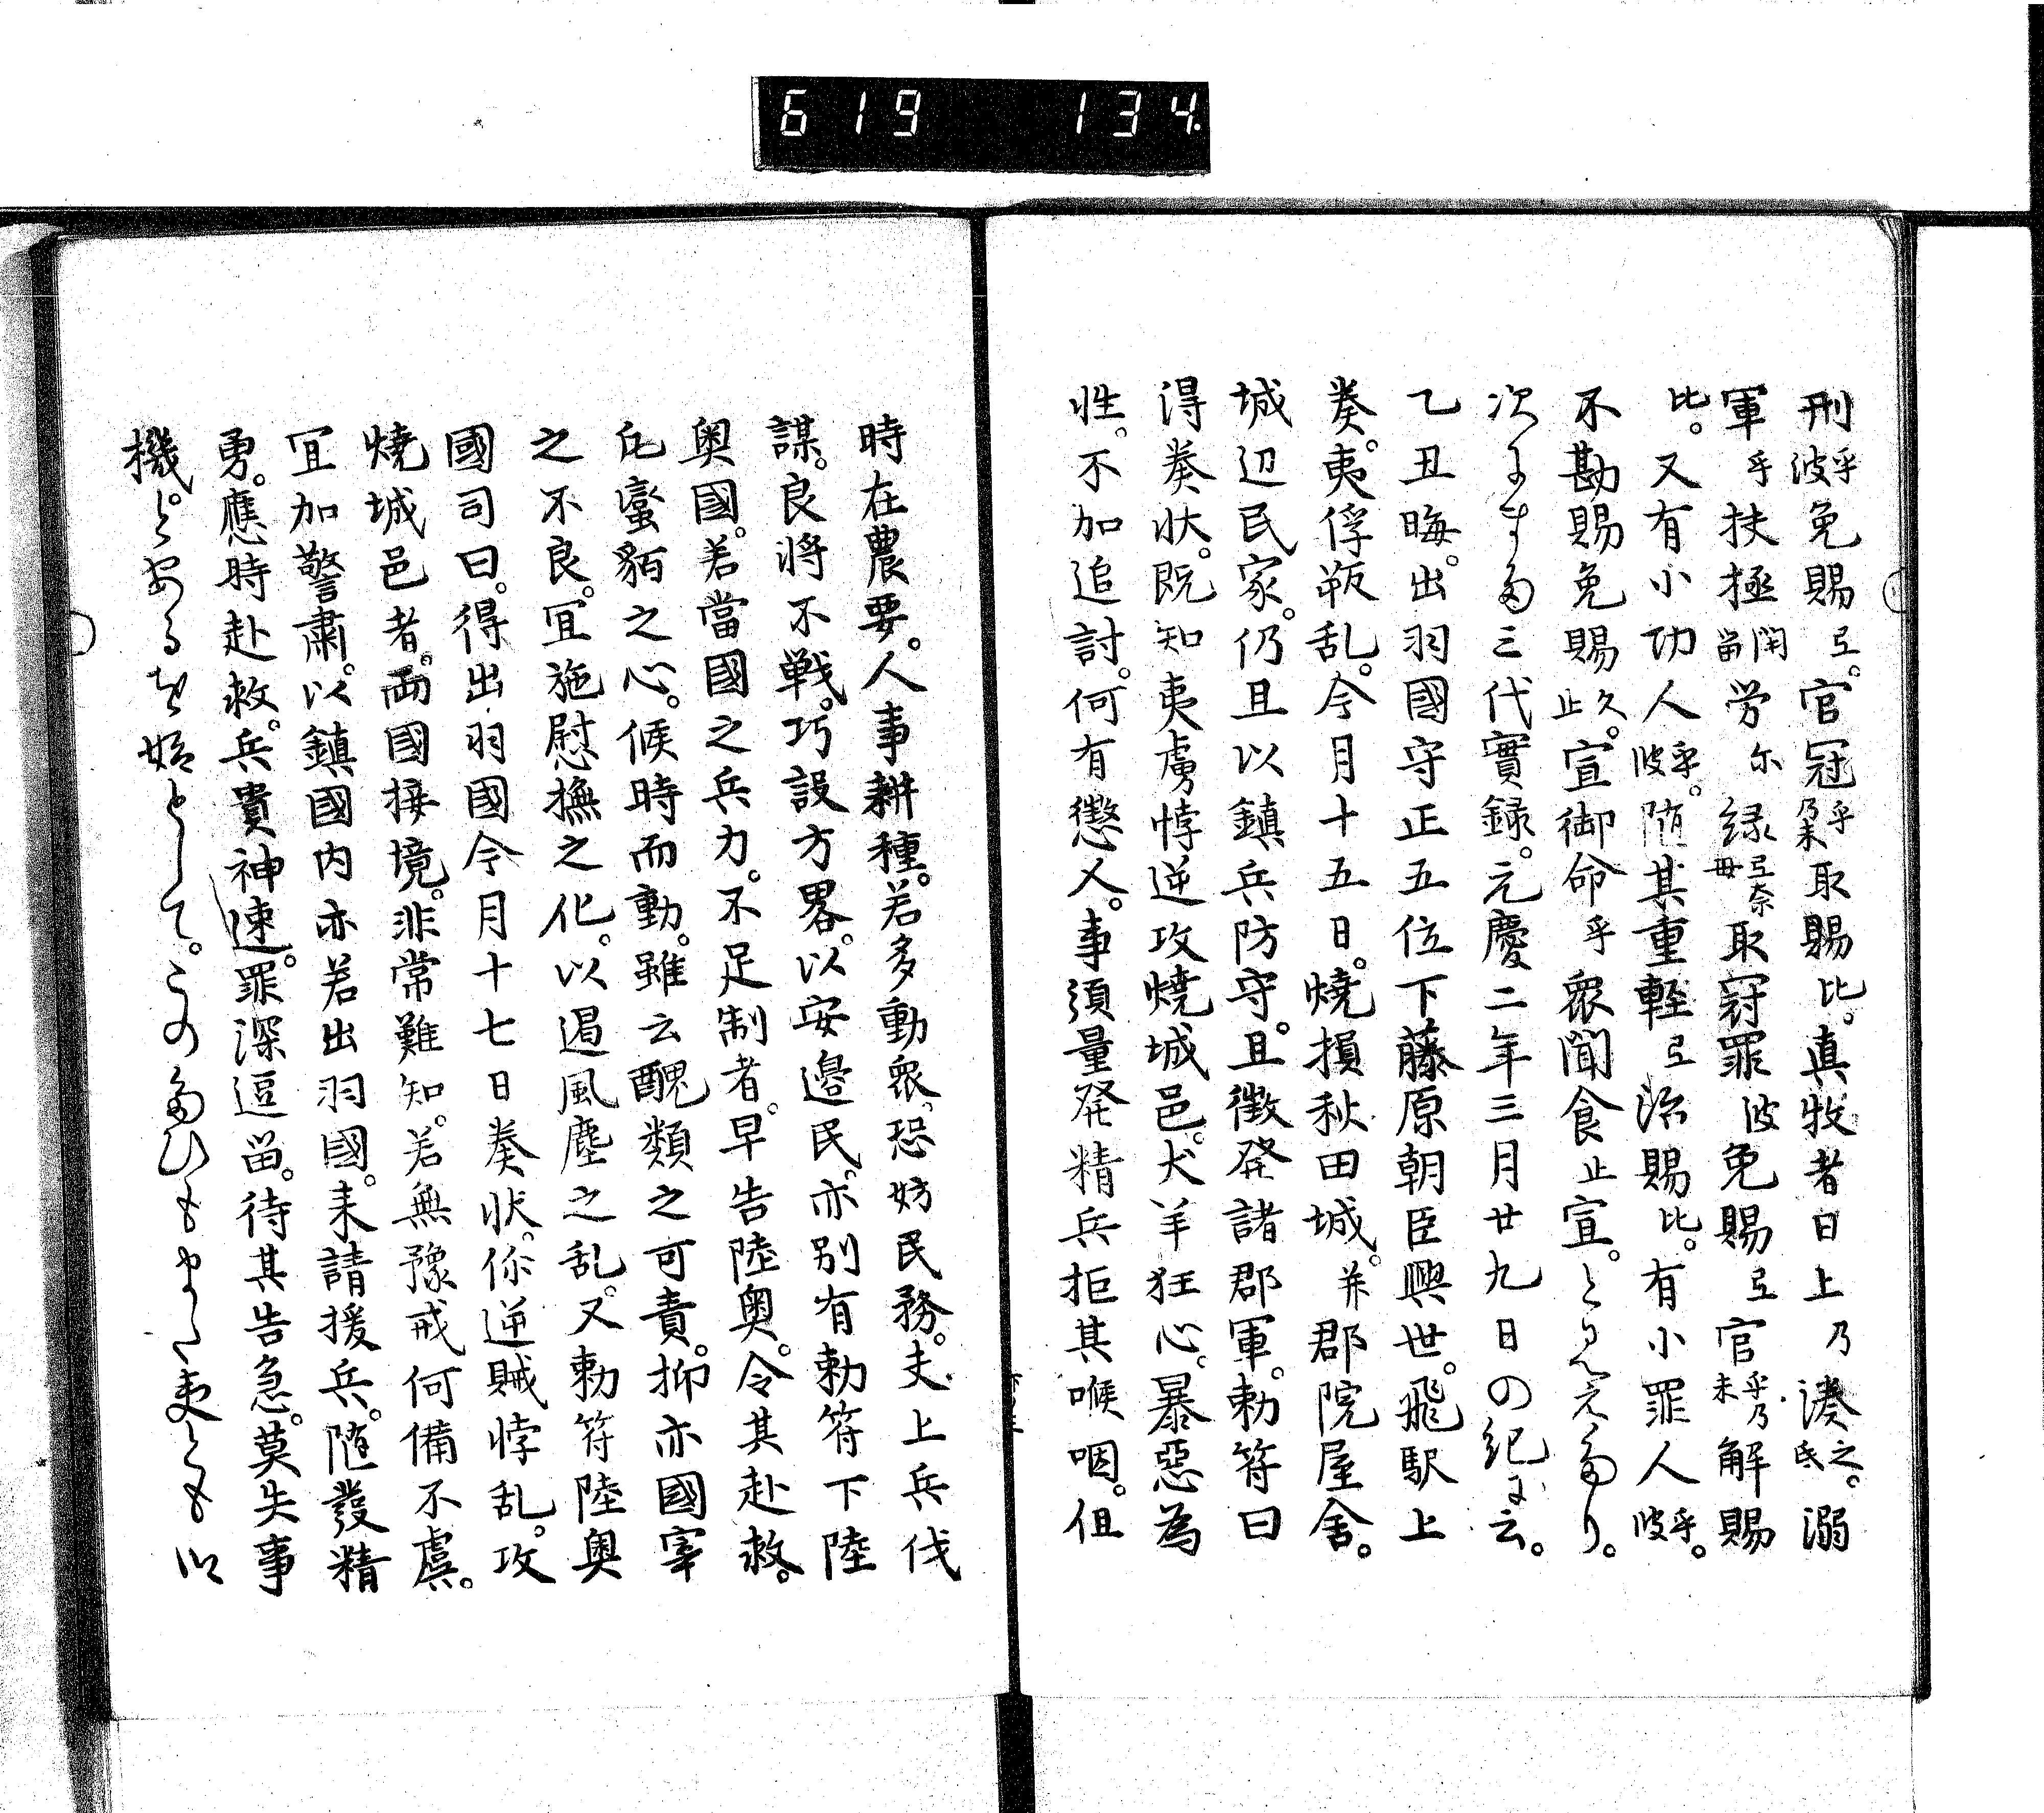 619 134
刑乎波免賜弖。官冠乎乃未取賜比。真枚者日上乃湊之氐。溺
軍乎扶拯閇畄労尓緑弖奈毌取冠罪波免賜弖官乎乃未解賜
比。又有小功人乎波。随其重軽弖治賜比。有小罪人乎波。
不勘賜免賜久止。宣御命乎衆聞食止宣。と見えたり。
次にまた三代實録。元慶二年三月廿九日の紀に云。
乙丑晦。出羽國守正五位下藤原朝臣興世。飛駅上
奏。夷俘叛乱。今月十五日。燒損秋田城。并郡院屋舍。
城辺民家。仍且以鎮兵防守。且徴発諸郡軍。勅符曰
得奏状。既知夷虜悖逆攻燒城邑。犬羊狂心。暴惡為
性。不加追討。何有懲乂。事須量発精兵拒其喉咽。但
時在農要。人事耕種。若多動衆。恐妨民務。夫上兵伐
謀。良將不戦。巧設方畧。以安邉民。亦別有勅符下陸
奥國。若當國之兵力。不足制者。早告陸奥。令其赴救。
凢蛮貊之心。候時而動。雖云醜類之可責。抑亦國宰
之不良。冝施慰撫之化。以遏風塵之乱。又勅符陸奥
國司曰。得出羽國今月十七日奏状。你逆賊悖乱。攻
燒城邑者。両國接境。非常難知。若無豫戒何備不虞。
冝加警肅。以鎮國内亦若出羽國。来請援兵。随發精
勇。應時赴救。兵貴神速。罪深逗畄。待其告急。莫失事
機。とあるを始として。このたひもまた夷ともか